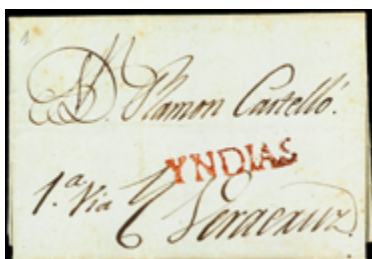 A D. Ramon Castelló.
YNDIAS
1.ª Via Veracruz.